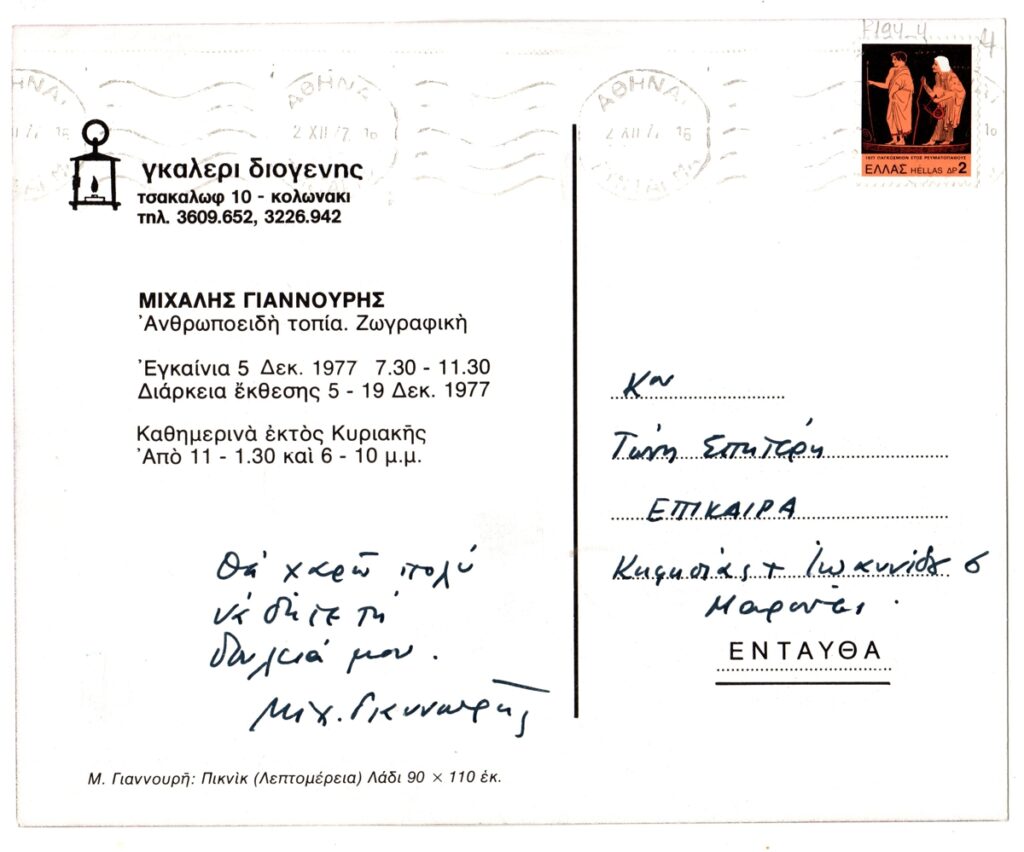 P194-4
4
ΑΘΗΝΑΙ
2 XII 77 16
γκαλερι διογενης
τσακαλωφ 10 - κολωνακι
τηλ. 3609.652, 3226.942
1977 ΠΑΓΚΟΣΜΙΟΝ ΕΤΟΣ ΡΕΥΜΑΤΟΠΑΘΟΥΣ
ΕΛΛΑΣ HELLAS ΔΡ 2
ΜΙΧΑΛΗΣ ΓΙΑΝΝΟΥΡΗΣ
Ἀνθρωποειδὴ τοπία. Ζωγραφικὴ
Ἐγκαίνια 5 Δεκ. 1977 7.30 - 11.30
Διάρκεια ἔκθεσης 5 - 19 Δεκ. 1977
Καθημερινὰ ἐκτὸς Κυριακῆς
Ἀπὸ 11 - 1.30 καὶ 6 - 10 μ.μ.
Θά χαρῶ πολύ
νά δῆτε τή
δουλειά μου.
Μιχ. Γιαννουρῆς
Μ. Γιαννουρῆ: Πικνὶκ (Λεπτομέρεια) Λάδι 90 × 110 ἐκ.
Κον
Τώνη Σπητέρη
ΕΠΙΚΑΙΡΑ
Κηφησίας + Ἰωαννίδου 6
Μαρούσι.
ΕΝΤΑΥΘΑ